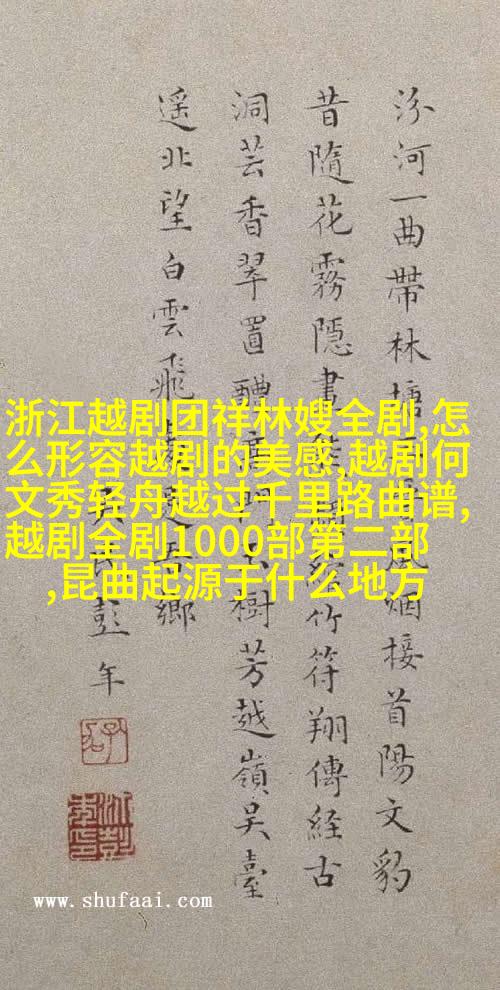 浙江越剧团祥林嫂全剧,怎
么形容越剧的美感,越剧何
文秀轻舟越过千里路曲谱,
越剧全剧1000部第二部
,昆曲起源于什么地方
汾河一曲帶林塘風烟接首陽文豹
昔隨花霧隱書竹符翔傳経古
洞芸香翠置醴樹芳越嶺吴臺
遥北望白雲飛鄉
彭年
www.shufaai.com